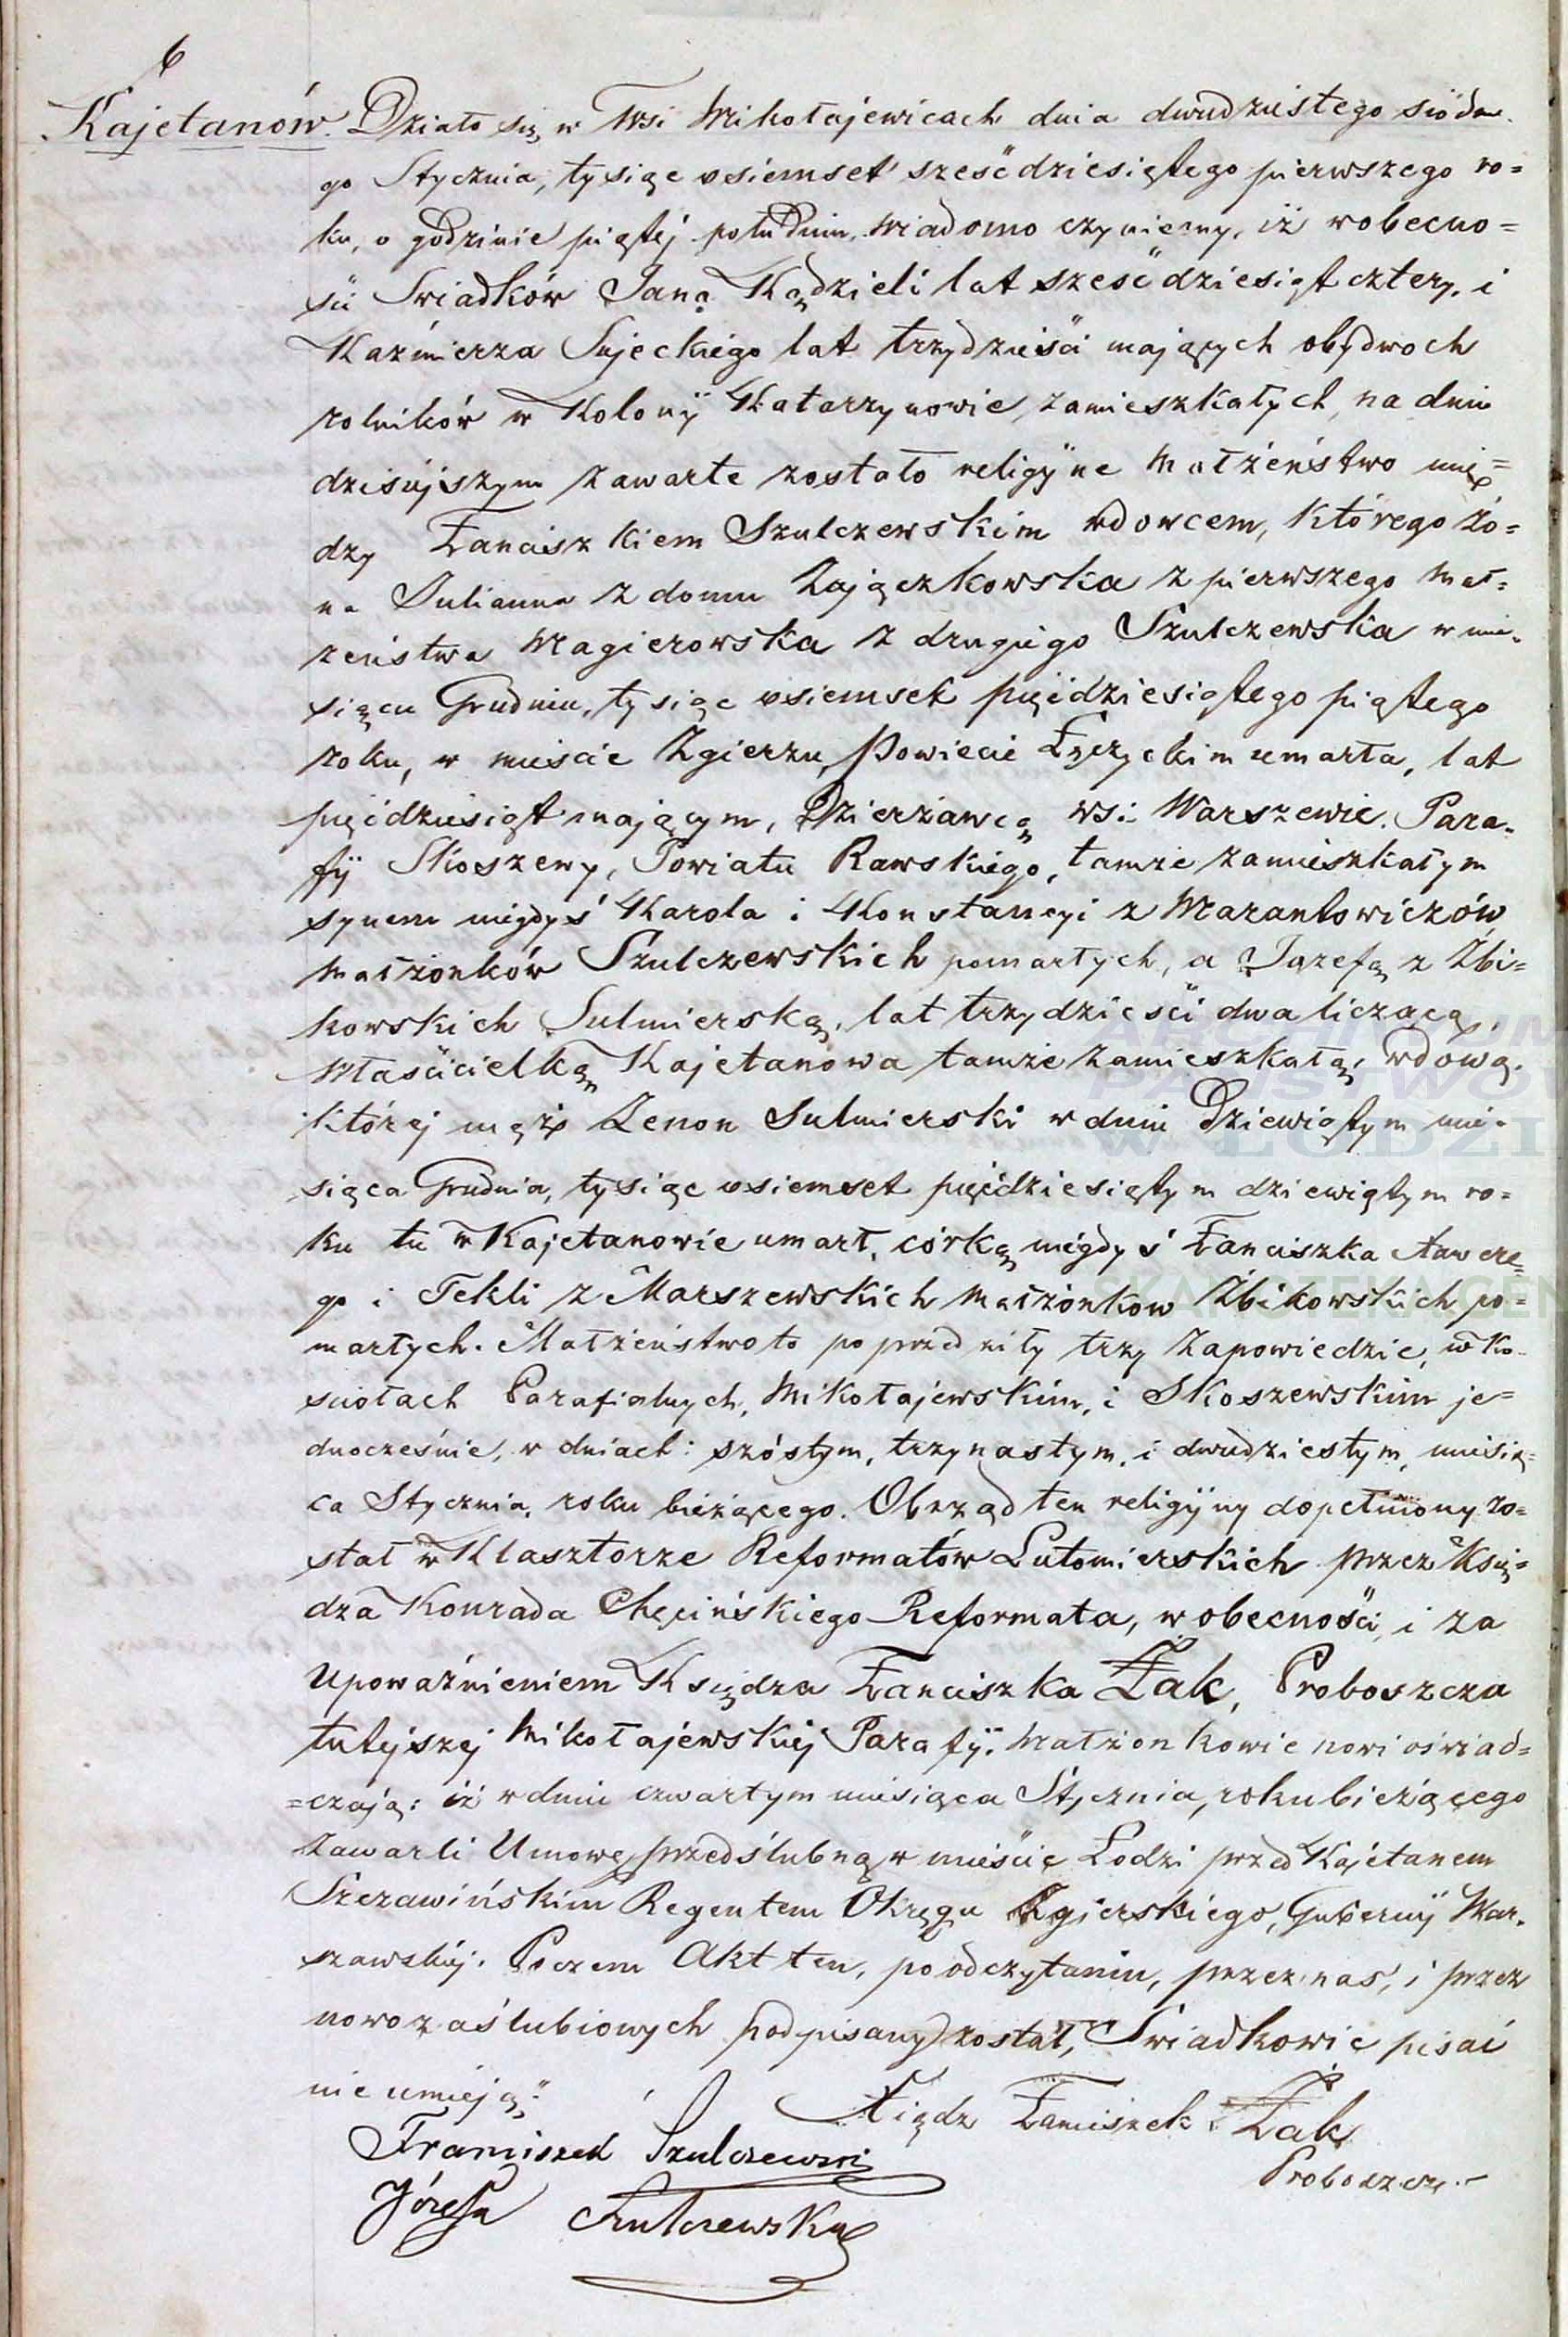 6
Kajetanów. Działo się w Wsi Mikołajewicach dnia dwudziestego siódme-
go Stycznia, tysiąc osiemset sześćdziesiątego pierwszego ro=
ku, o godzinie piątéj południu, wiadomo czyniemy, iż w obecno=
ści Swiadków Jana Kądzieli lat sześćdziesiąt cztery, i
Kaźmierza Sujeckiego lat trzydzieści mających obydwoch
rolników w Kolonÿ Katarzynowie zamieszkałych, na dniu
dzisiejszym zawarte zostało religÿne Małżeństwo mię=
dzy Franciszkiem Szulczewskim wdowcem, którego żo=
na Julianna z domu Zajączkowska z pierwszego mał=
żeństwa Magierowska z drugiego Szulczewska w mie-
siącu Grudniu, tysiąc osiemset pięćdziesiątego piątego
roku, w mieście Zgierzu, Powiecie Łęczyckim umarła, lat
pięćdziesiąt mającym, Dzierżawcą wsi Warszewic. Para-
fÿ Skoszewy, Powiatu Rawskiego, tamże zamieszkałym
synem niegdyś Karola i Konstancyi z Marantowiczów
Małżonków Szulczewskich pomarłych, a Józefą z Zbi=
kowskich Sulmierską, lat trzydzieści dwa liczącą,
Właścicielką Kajetanowa tamże zamieszkałą, wdową.
któréj mąż Zenon Sulmierski w dniu Dziewiątym mie-
siąca Grudnia, tysiąc osiemset pięćdziesiątym dziewiątym ro=
ku tu w Kajetanowie umarł, córką niegdyś Franciszka Xawere=
go i Tekli z Marszewskich Małżonkow Zbikowskich po=
marłych. Małżeństwo to poprzedziły trzy Zapowiedzie, w Ko-
ściołach Parafialnych, Mikołajewskim, i Skoszewskim je=
dnocześnie, w dniach: szóstym, trzynastym, i dwudziestym, miesią=
ca Stycznia, roku bieżącego. Obrząd ten religÿny dopełniony zo=
stał w Klasztorze Reformatów Lutomierskich przez Księ=
dza Konrada Chęcińskiego Reformata, w obecności, i za
upoważnieniem Księdza Franciszka Żak, Proboszcza
tutejszej Mikołajewskiej Parafÿ. Małżonkowie nowi oświad=
=czają: iż w dniu czwartym miesiąca Stycznia, roku bieżącego
zawarli Umowę przedślubną w mieście Łodzi przed Kajetanem
Szczawińskim Regentem Okręgu Zgierskiego, Gubernÿ War-
szawskiéj. Poczem Akt ten, po odczytaniu, przez nas, i przez
nowozaślubionych podpisany został, Swiadkowie pisać
nie umieją.
Xiądz Franciszek Żak
Proboszcz.
Franciszek Szulczewski
Józefa Szulczewska
ARCHIWUM
PAŃSTWO
W ŁODZI
SKANOTEKAGEN